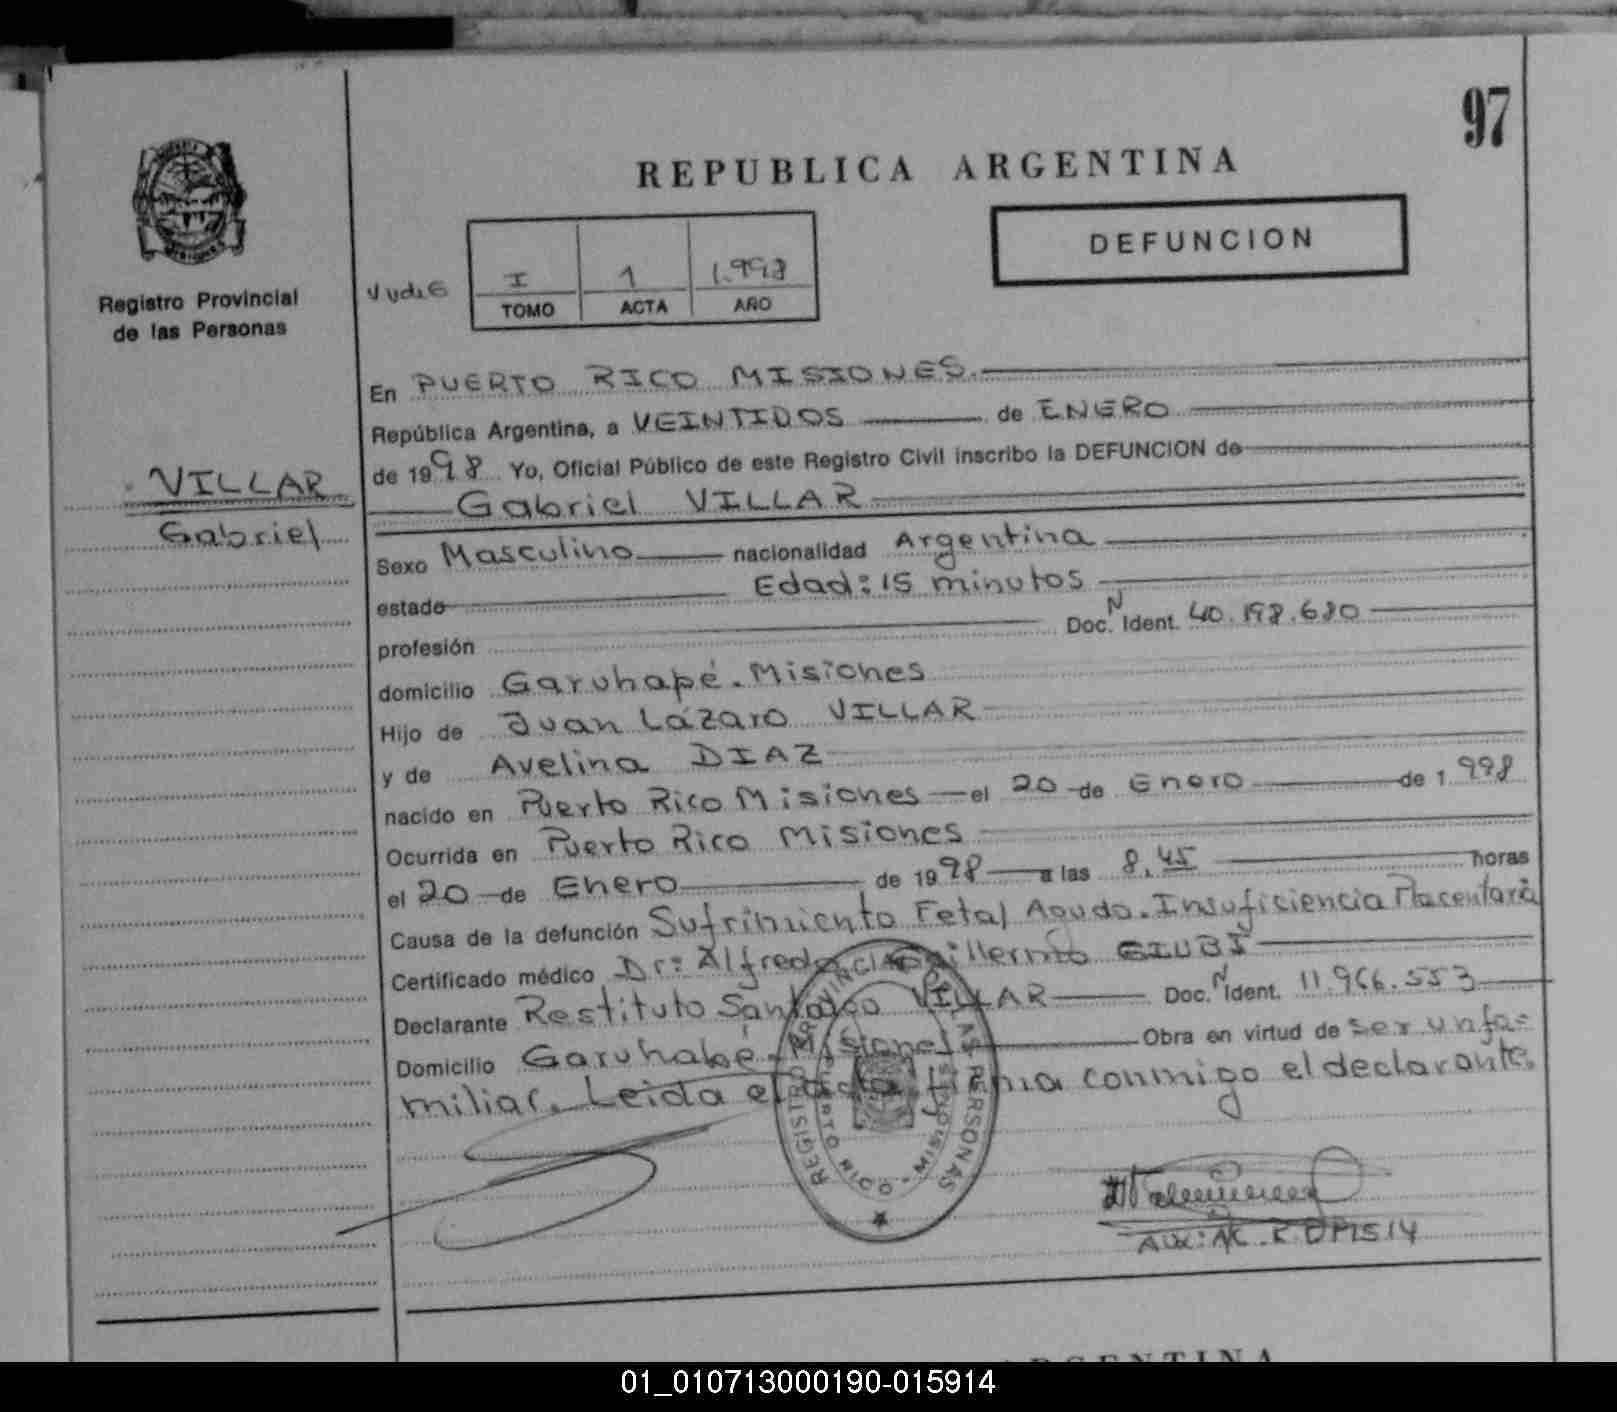 97
REPUBLICA ARGENTINA
DEFUNCION
Registro Provincial
de las Personas
I 1 1.998
TOMO ACTA AÑO
En PUERTO RICO MISIONES.
República Argentina, a VEINTIDOS de ENERO
de 1998 Yo, Oficial Público de este Registro Civil inscribo la DEFUNCION de
VILLAR
Gabriel
Gabriel VILLAR
Sexo Masculino nacionalidad Argentina
estado Edad: 15 minutos
profesión Doc. N Ident. 40.198.680
domicilio Garuhapé. Misiones
Hijo de Juan Lázaro VILLAR
y de Avelina DIAZ
nacido en Puerto Rico Misiones el 20 de Enero de 1.998
Ocurrida en Puerto Rico Misiones
el 20 de Enero de 1998 a las 8,45 horas
Causa de la defunción Sufrimiento Fetal Agudo. Insuficiencia Placentaria
Certificado médico Dr: Alfredo Guillermo GIUBI
Declarante Restituto Santiago VILLAR Doc. N Ident. 11.966.553
Domicilio Garuhapé. Misiones Obra en virtud de ser un fa=
miliar. Leida el acta firma conmigo el declarante.
REGISTRO PROVINCIAL DE LAS PERSONAS
PUERTO RICO - MISIONES
ARGENTINA
01_010713000190-015914